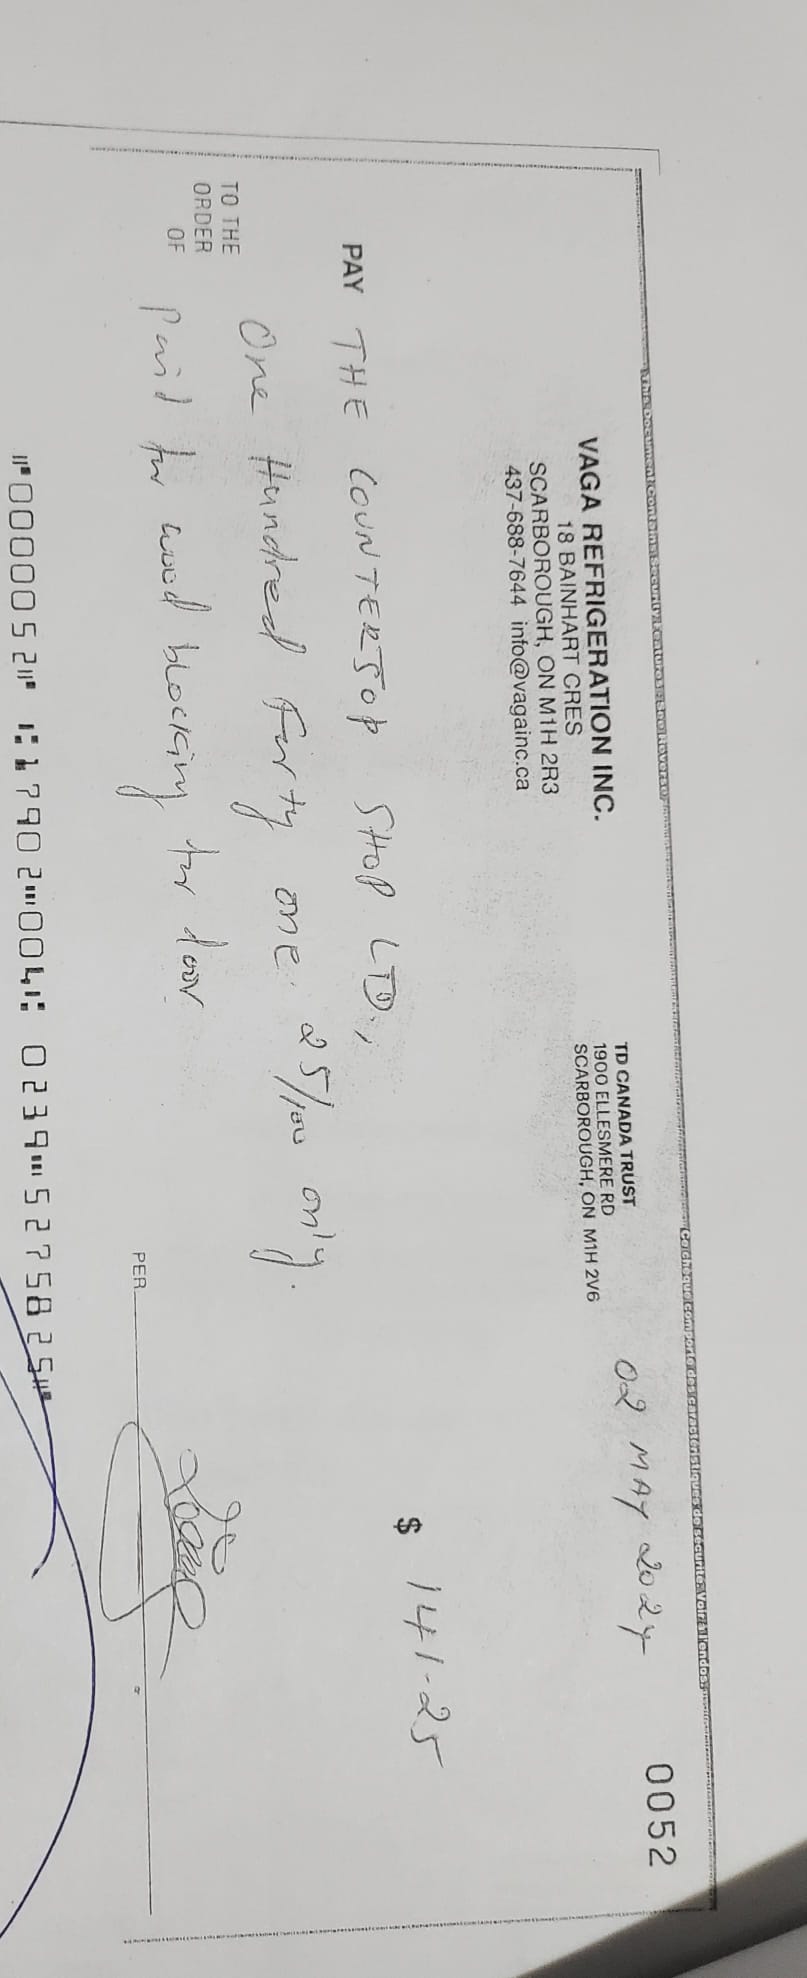 This Document Contains Security Features - See Reverse
Ce chèque comporte des caractéristiques de sécurité. Voir à l'endos.
0052
VAGA REFRIGERATION INC.
18 BAINHART CRES
SCARBOROUGH, ON M1H 2R3
437-688-7644 info@vagainc.ca
TD CANADA TRUST
1900 ELLESMERE RD
SCARBOROUGH, ON M1H 2V6
02 MAY 2024
$ 141-25
PAY THE COUNTERTOP SHOP LTD.,
One Hundred Forty one 25/100 only.
TO THE
ORDER
OF
Paid for wood blocking for door
PER
⑈0000052⑈ ⑆17902⑉004⑆ 0239⑉5275825⑈